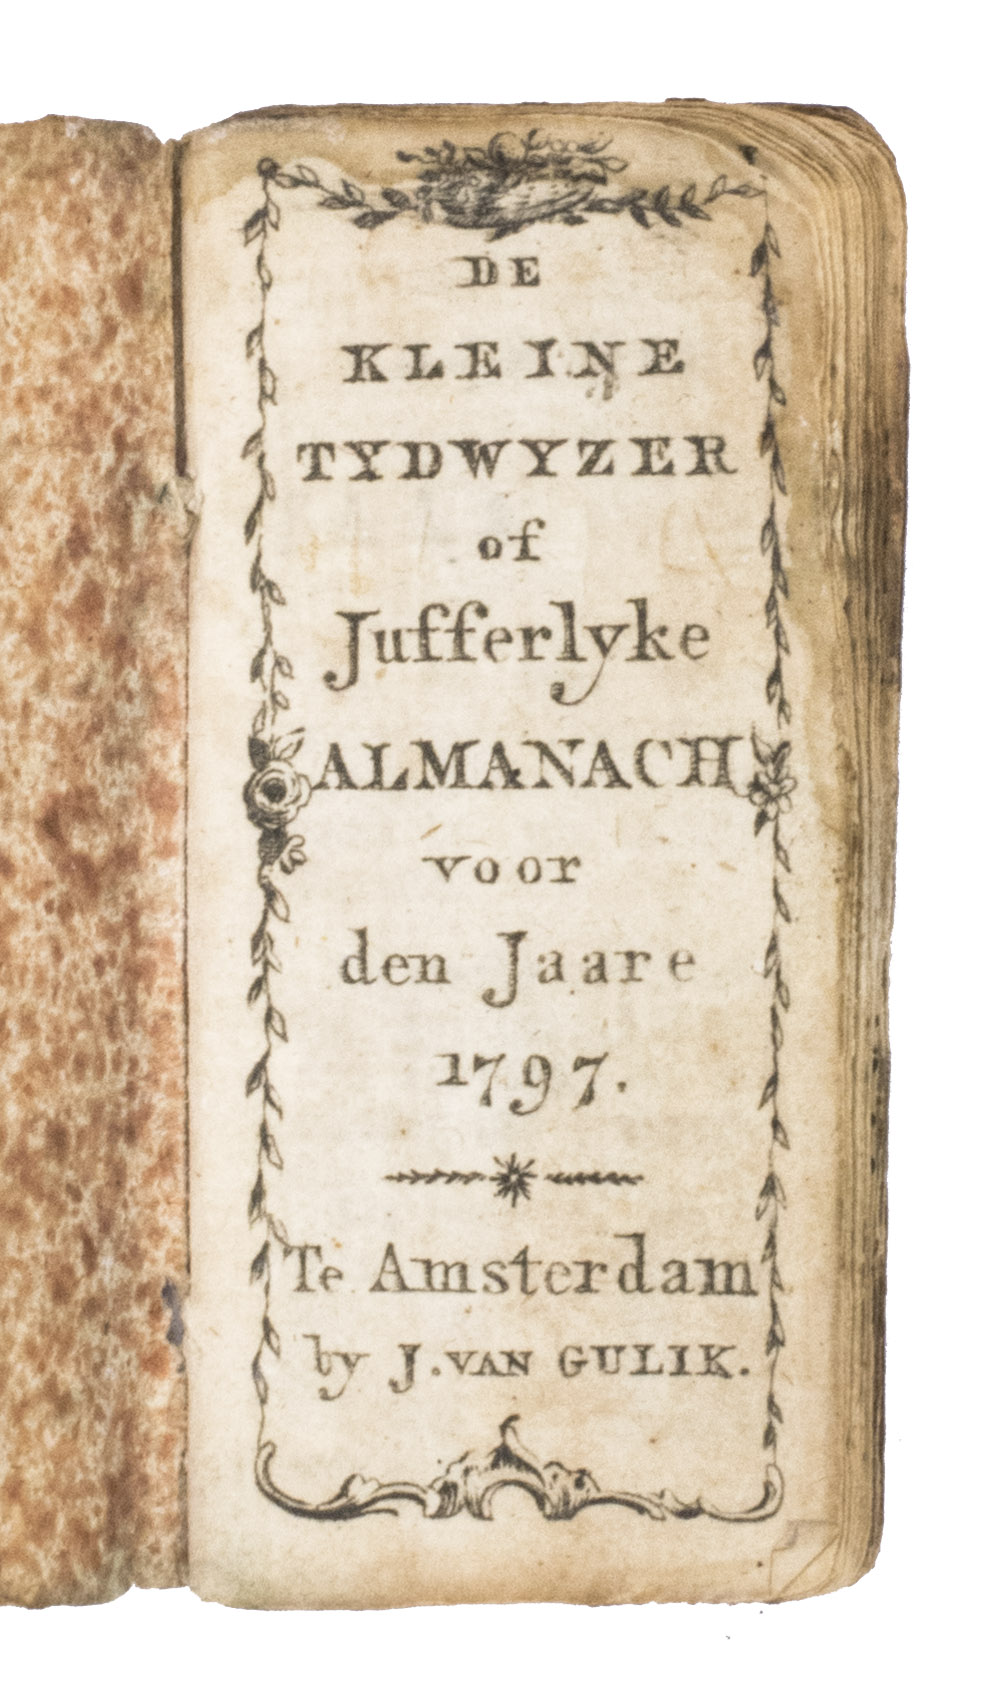 DE
KLEINE
TYDWYZER
of
Jufferlyke
ALMANACH,
voor
den Jaare
1797.
Te Amsterdam
by J. VAN GULIK.